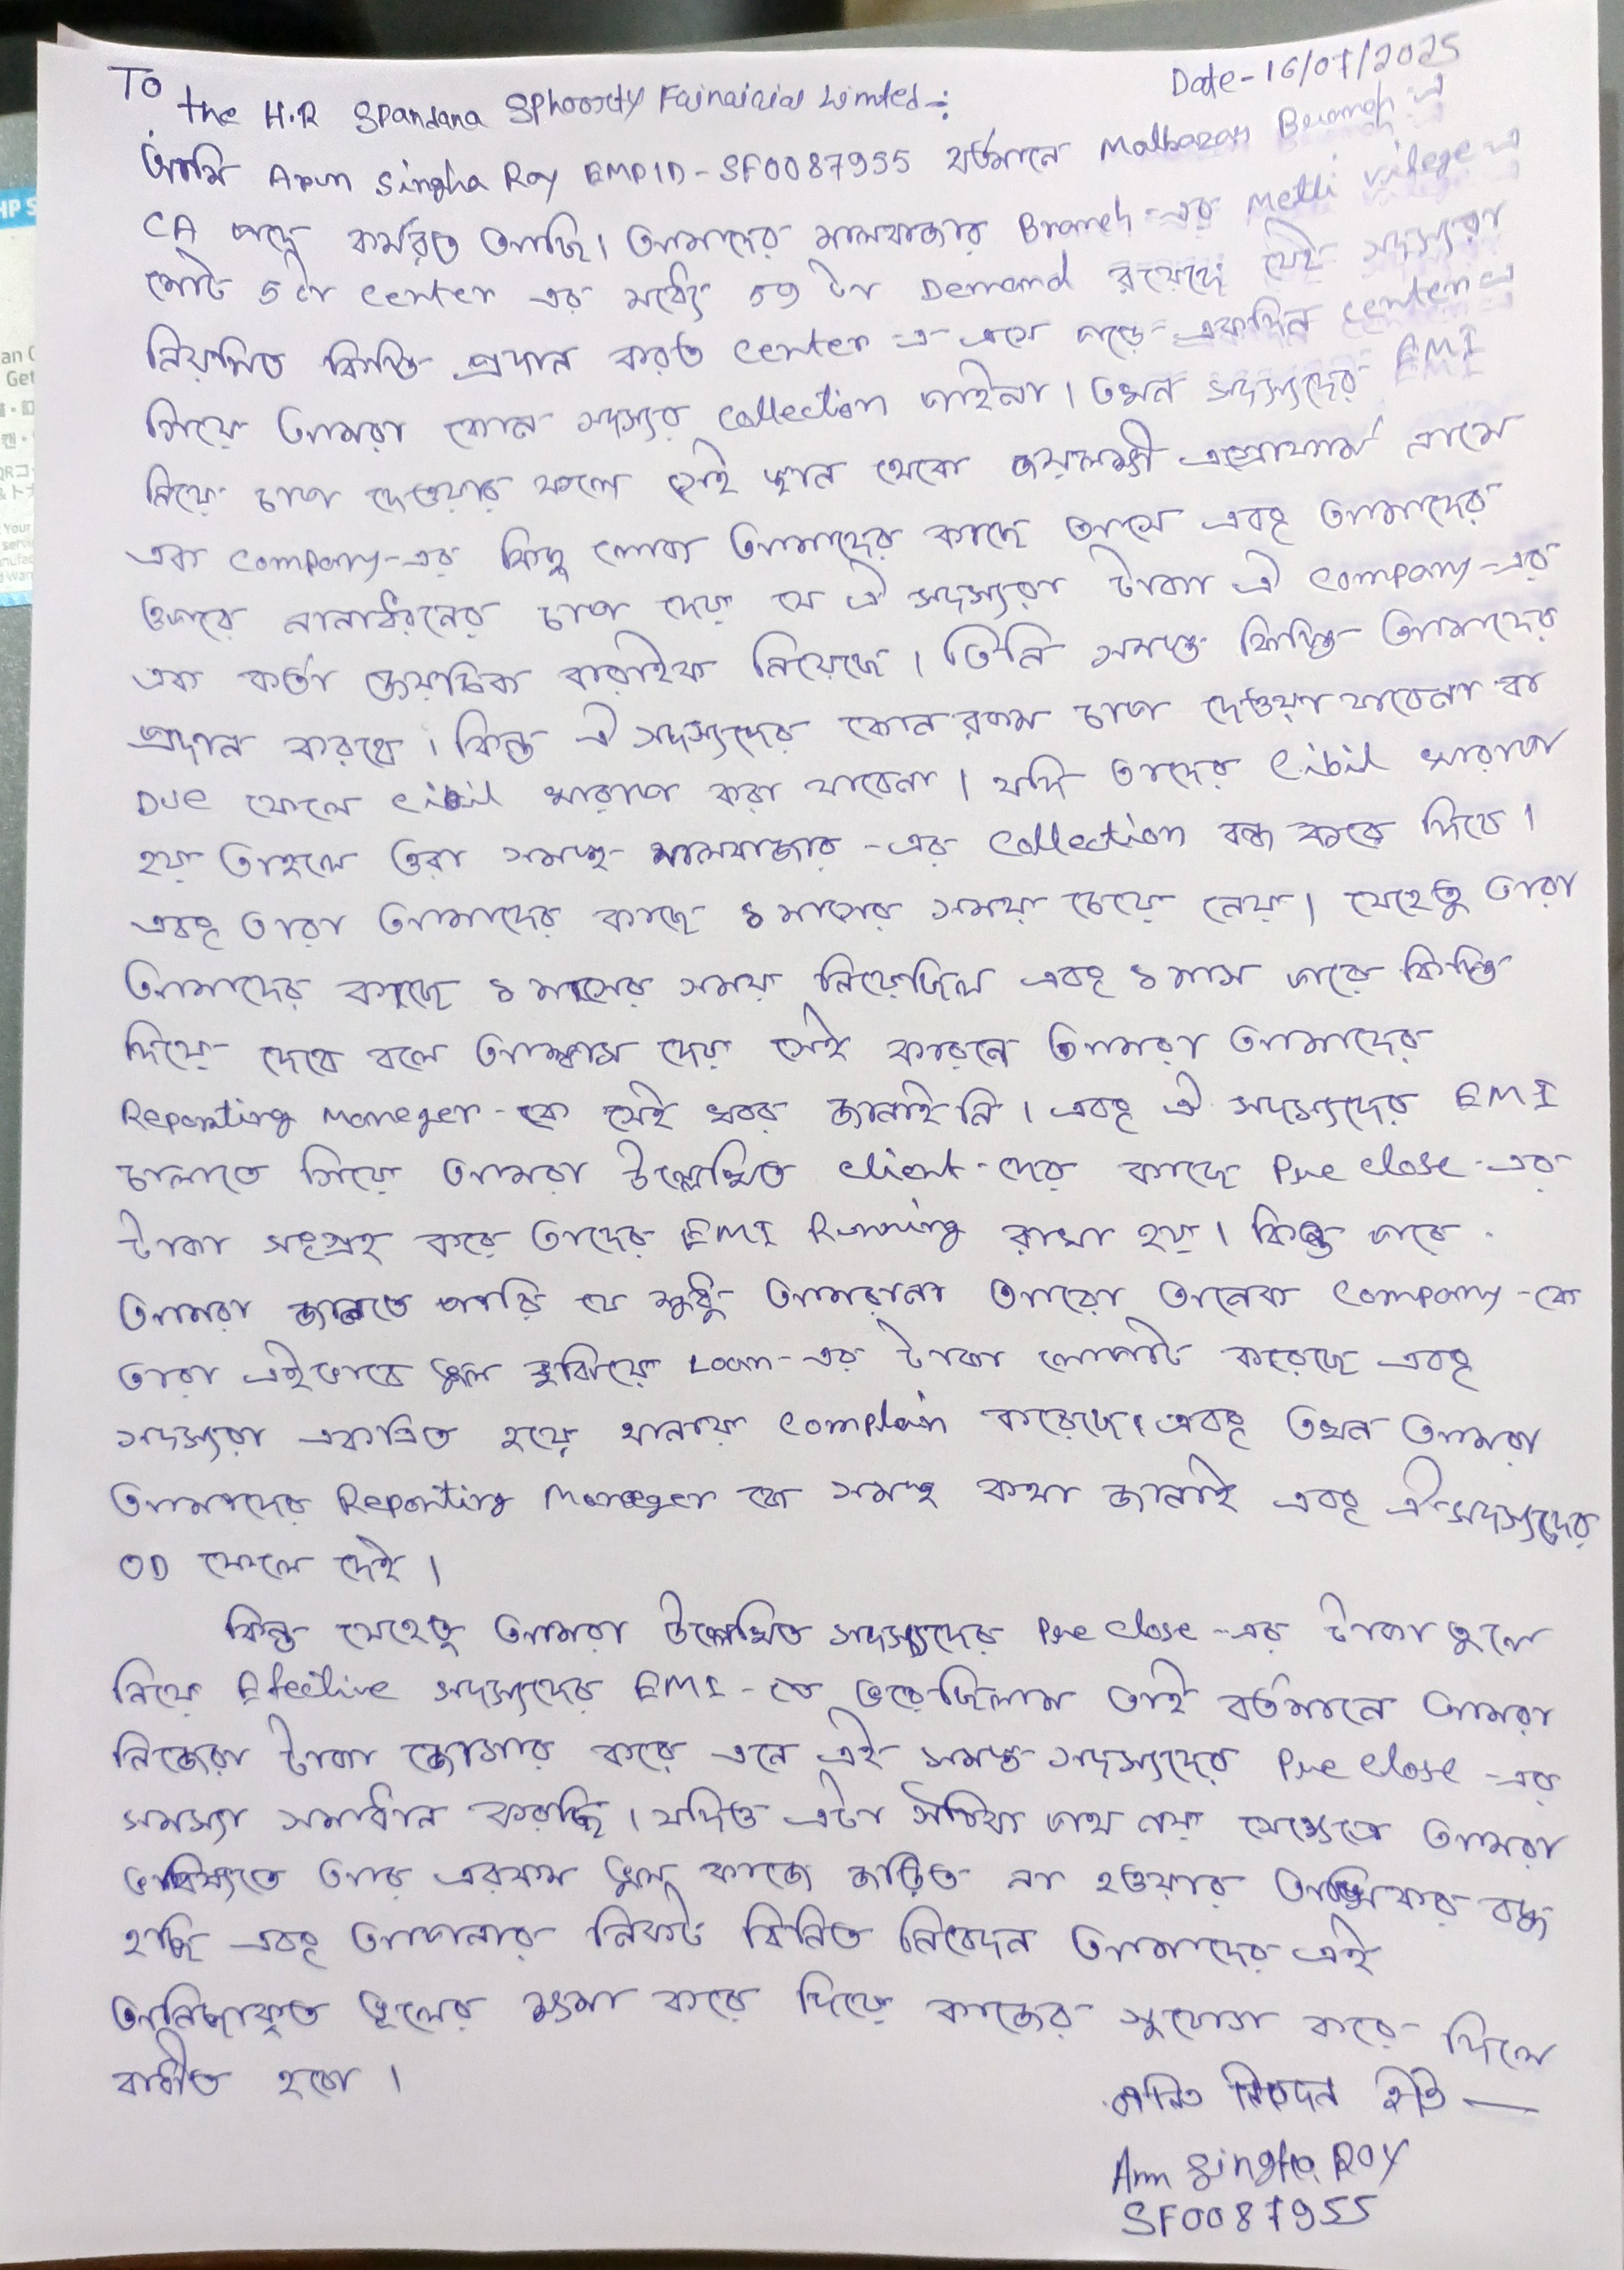 To
Date - 16/07/2025
the H.R Spandana Sphoorty Fainaicial Limited :-
আমি Arun Singha Roy EMPID - SF0087955 বর্তমানে Malbazar Branch এ
CA পদে কর্মরত আছি। আমাদের মালবাজার Branch-এর Metli villege এ
মোট 5 টা Center এর মধ্যে 59 টা Demand রয়েছে যেই সদস্যরা
নিয়মিত কিস্তি প্রদান করত Center-এ এসে পড়ে একদিন Center এ
গিয়ে আমরা কোন সদস্যর Collection পাইনা। তখন সদস্যদের EMI
নিয়ে চাপ দেওয়ার ফলে সেই স্থান থেকে জয়লক্ষী এগ্রোফার্ম নামে
এক Company-এর কিছু লোক আমাদের কাছে আসে এবং আমাদের
ওপরে নানাধরনের চাপ দেয় যে ঐ সদস্যরা টাকা ঐ Company-এর
এক কর্তা বারাইক নিয়েছে। তিনি সমস্ত কিস্তি আমাদের
প্রদান করবে। কিন্তু ঐ সদস্যদের কোন রকম চাপ দেওয়া যাবেনা বা
Due ফেলে Cibil খারাপ করা যাবেনা। যদি তাদের Cibil খারাপ
হয় তাহলে ওরা সমস্ত মালবাজার-এর Collection বন্ধ করে দিবে।
এবং তারা আমাদের কাছে ১ মাসের সময় চেয়ে নেয়। যেহেতু তারা
আমাদের কাছে ১ মাসের সময় নিয়েছিল এবং ১ মাস পরে কিস্তি
দিয়ে দেবে বলে আশ্বাস দেয় সেই কারনে আমরা আমাদের
Reporting Maneger-কে সেই খবর জানাইনি। এবং ঐ সদস্যদের EMI
চালাতে গিয়ে আমরা উল্লেখিত client-দের কাছে Pre close-এর
টাকা সংগ্রহ করে তাদের EMI Running রাখা হয়। কিন্তু পরে
আমরা জানতে পারি যে শুধু আমরানা আরো অনেক Company-কে
তারা এইভাবে ভুল বুঝিয়ে Loan-এর টাকা লোপাট করেছে এবং
সদস্যরা একত্রিত হয়ে থানায় Complain করেছে। এবং তখন আমরা
আমাদের Reporting Maneger কে সমস্ত কথা জানাই এবং ঐ সদস্যদের
OD ফেলে দেই।
কিন্তু যেহেতু আমরা উল্লেখিত সদস্যদের Pre close-এর টাকা তুলে
নিয়ে Efective সদস্যদের EMI-তে ভরেছিলাম তাই বর্তমানে আমরা
নিজেরা টাকা জোগার করে এনে এই সমস্ত সদস্যদের Pre close-এর
সমস্যা সমাধান করছি। যদিও এটা সঠিক পথ নয় সেক্ষেত্রে আমরা
ভবিষ্যতে আর এরকম ভুল কাজে জড়িত না হওয়ার অঙ্গিকার বদ্ধ
হচ্ছি এবং আপনার নিকট বিনিত নিবেদন আমাদের এই
অনিচ্ছাকৃত ভুলের ক্ষমা করে দিয়ে কাজের সুযোগ করে দিলে
বাধীত হবো।
নিবেদন ইতি —
Arun Singha Roy
SF0087955